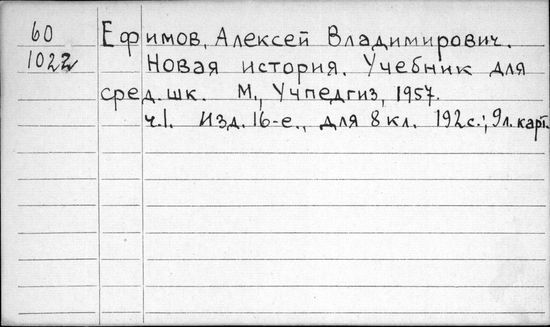 60 Ефимов, Алексей Владимирович.
1022 Новая история. Учебник для
сред. шк. М., Учпедгиз, 1957.
ч.1. Изд. 16-е., для 8 кл. 192 с.; 9 л. карт.